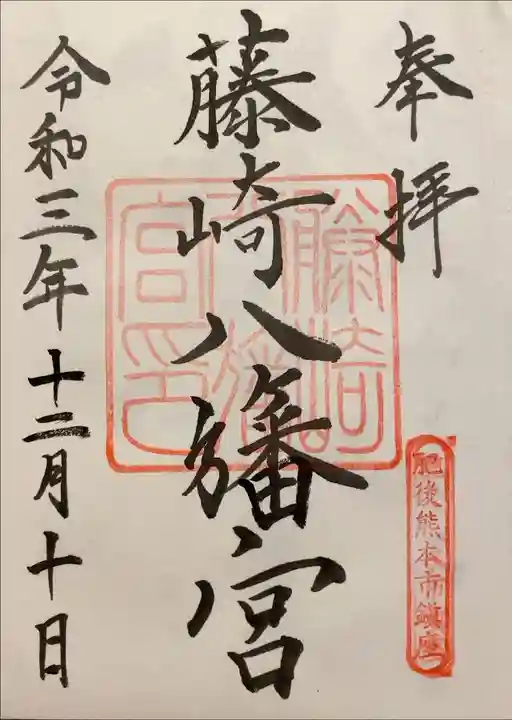 奉拝
肥後熊本市鎭座
藤崎八旛宮
藤崎
八旛
宮印
令和三年十二月十日